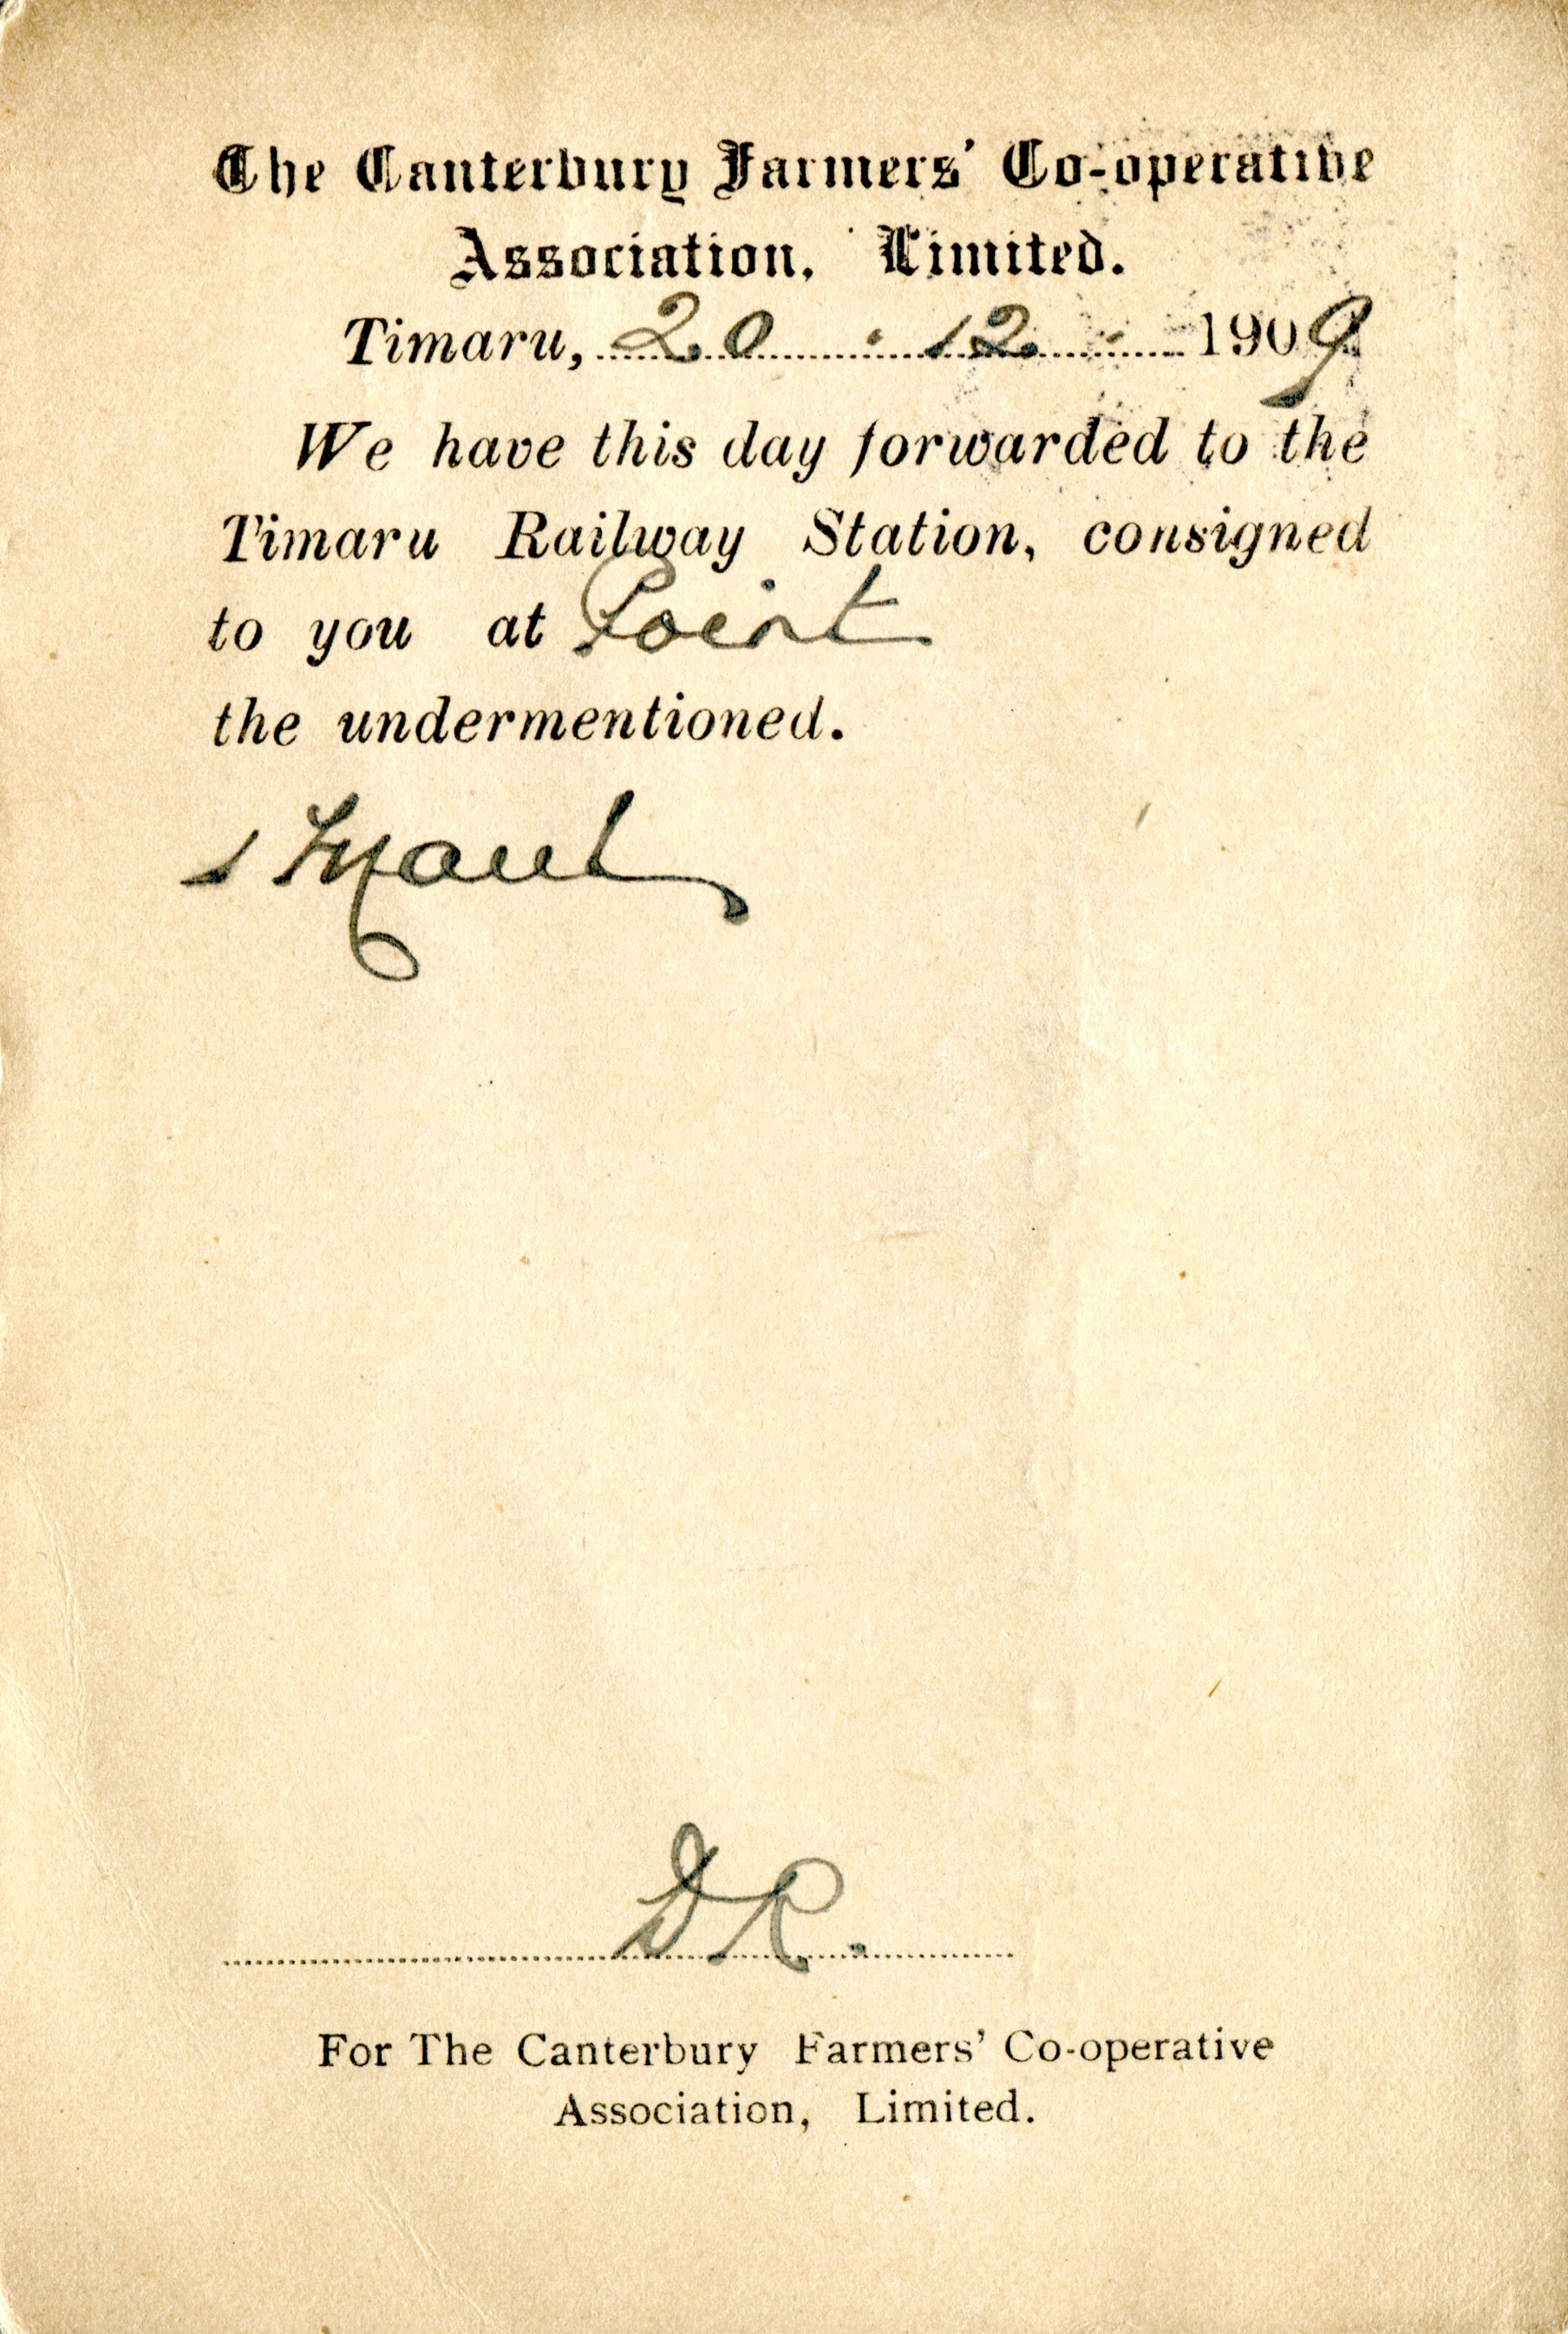 The Canterbury Farmers' Co-operative
Association, Limited.
Timaru, 20 . 12 . 1909
We have this day forwarded to the
Timaru Railway Station, consigned
to you at Point
the undermentioned.
1
D R.
For The Canterbury Farmers' Co-operative
Association, Limited.